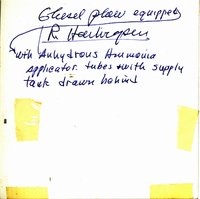 Chisel plow equipped
R
with Anhydrous Ammonia
applicator tubes + with supply
tank drawn behind